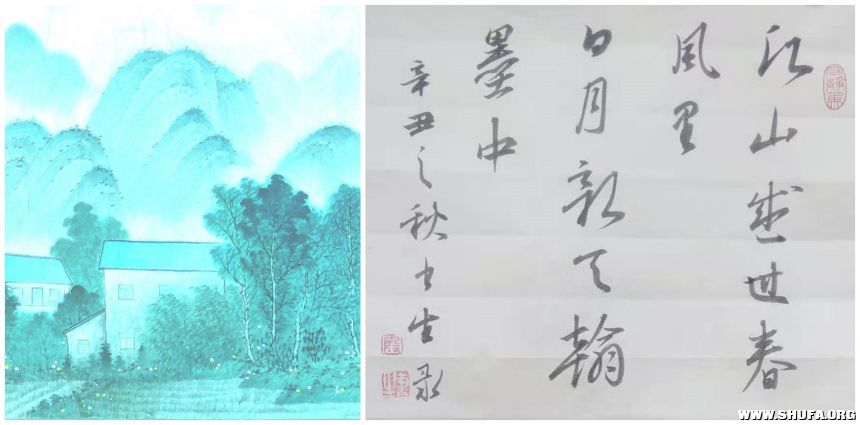 江山盛世春
风里
日月新天翰
墨中
辛丑之秋书生录
WWW.SHUFA.ORG